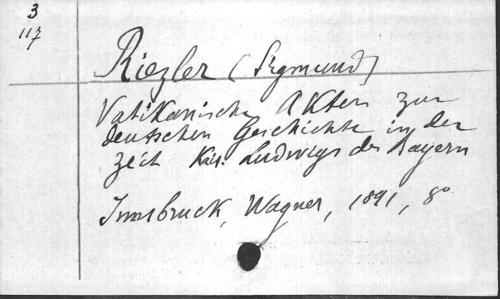 3
117
Riezler (Sigmund)
Vatikanische Akten zur
deutschen Geschichte in der
zeit Kais. Ludwigs des Bayern
Innsbruck, Wagner, 1891, 8°